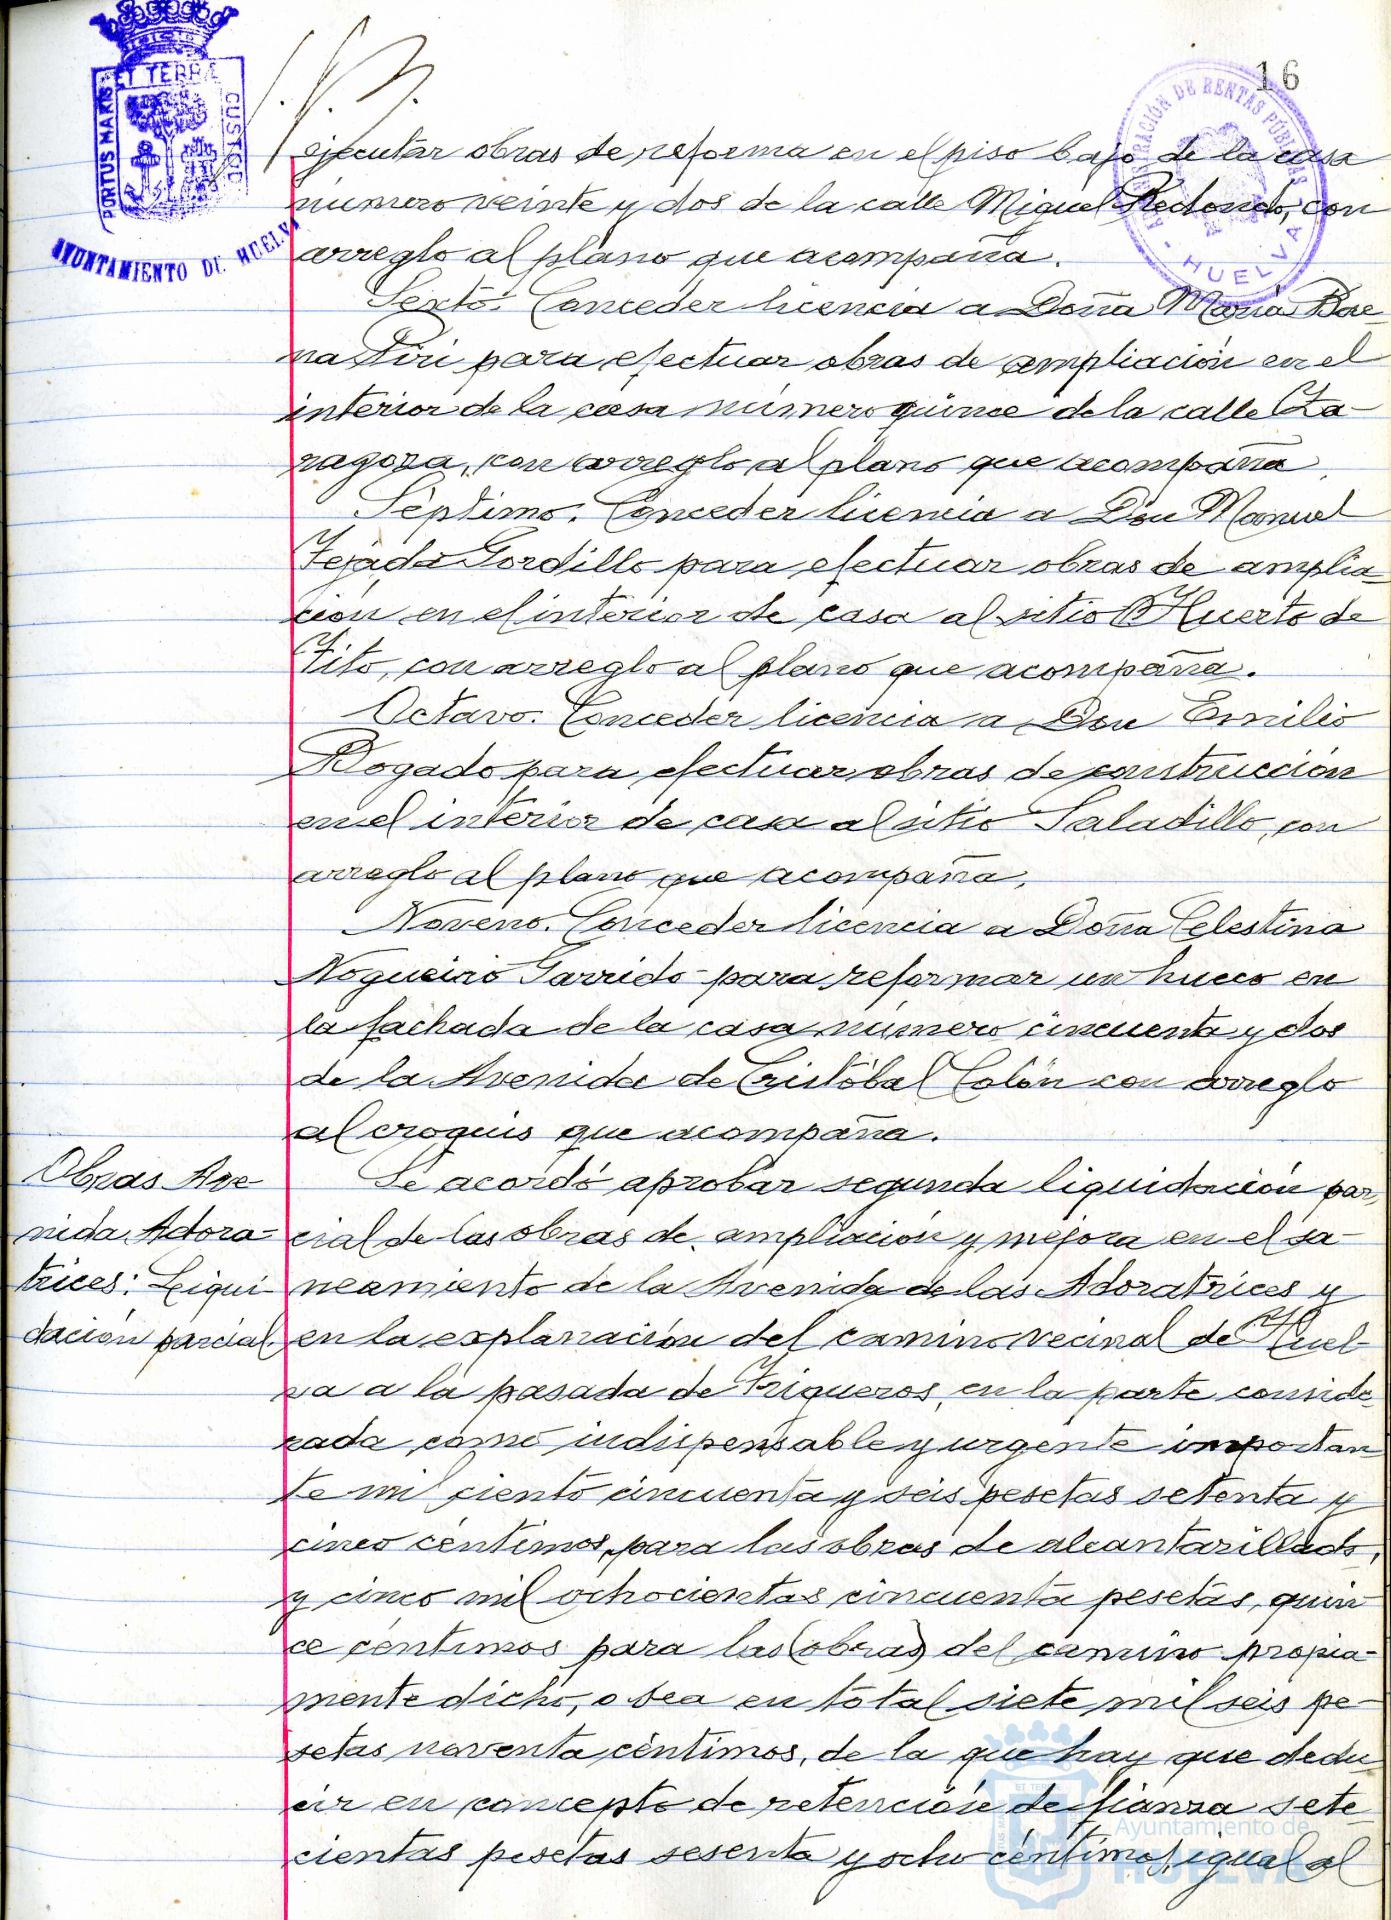 16
PORTUS MARIS ET TERRÆ CUSTODIA
AYUNTAMIENTO DE HUELVA
ADMINISTRACIÓN DE RENTAS PÚBLICAS
- HUELVA -
ejecutar obras de reforma en el piso bajo de la casa
número veinte y dos de la calle Miguel Redondo, con
arreglo al plano que acompaña.
Sexto. Conceder licencia a Doña María Bae-
na Piri para efectuar obras de ampliación en el
interior de la casa número quince de la calle Za-
ragoza, con arreglo al plano que acompaña.
Séptimo. Conceder licencia a Don Manuel
Tejada Gordillo para efectuar obras de amplia-
ción en el interior de casa al sitio Huerto de
Tito, con arreglo al plano que acompaña.
Octavo. Conceder licencia a Don Emilio
Bogado para efectuar obras de construcción
en el interior de casa al sitio Saladillo, con
arreglo al plano que acompaña.
Noveno. Conceder licencia a Doña Celestina
Nogueiro Garrido para reformar un hueco en
la fachada de la casa número cincuenta y dos
de la Avenida de Cristóbal Colón con arreglo
al croquis que acompaña.
Obras Ave-
nida Adora-
trices: Liqui-
dación parcial.
Se acordó aprobar segunda liquidación par-
cial de las obras de ampliación y mejora en el sa-
neamiento de la Avenida de las Adoratrices y
en la explanación del camino vecinal de Huel-
va a la pasada de Trigueros, en la parte conside-
rada como indispensable y urgente importan-
te mil ciento cincuenta y seis pesetas setenta y
cinco céntimos, para las obras de alcantarillado,
y cinco mil ochocientas cincuenta pesetas, quin-
ce céntimos para las (obras) del camino propia-
mente dicho, o sea en total siete mil seis pe-
setas noventa céntimos, de la que hay que dedu-
cir en concepto de retención de fianza sete-
cientas pesetas sesenta y ocho céntimos, igual al
Ayuntamiento de
HUELVA